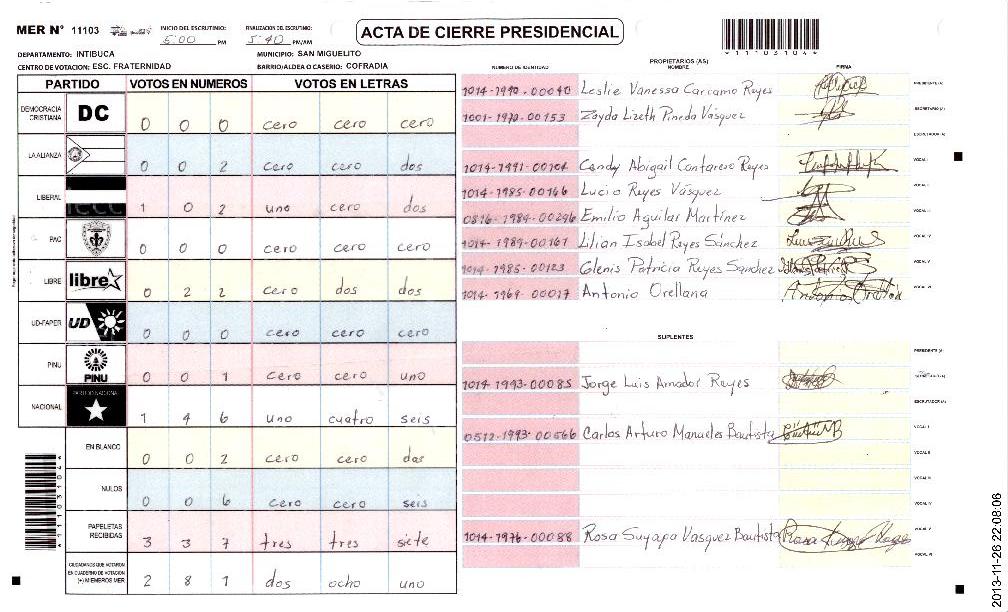 MER Nº 11103
INICIO DEL ESCRUTINIO: 5:00 PM
FINALIZACION DEL ESCRUTINIO: 5:40 PM/AM
ACTA DE CIERRE PRESIDENCIAL
*11103104*
DEPARTAMENTO: INTIBUCA MUNICIPIO: SAN MIGUELITO
CENTRO DE VOTACION: ESC. FRATERNIDAD BARRIO/ALDEA O CASERIO: COFRADIA
PARTIDO VOTOS EN NUMEROS VOTOS EN LETRAS
DEMOCRACIA CRISTIANA DC 0 0 0 cero cero cero
LA ALIANZA 0 0 2 cero cero dos
LIBERAL 1 0 2 uno cero dos
PAC 0 0 0 cero cero cero
LIBRE libre 0 2 2 cero dos dos
UD-FAPER UD 0 0 0 cero cero cero
PINU PINU 0 0 1 cero cero uno
NACIONAL PARTIDO NACIONAL 1 4 6 uno cuatro seis
EN BLANCO 0 0 2 cero cero dos
NULOS 0 0 6 cero cero seis
PAPELETAS RECIBIDAS 3 3 7 tres tres siete
CIUDADANOS QUE VOTARON EN CUADERNO DE VOTACION (+) MIEMBROS MER 2 8 1 dos ocho uno
*11103104*
PROPIETARIOS (AS)
NUMERO DE IDENTIDAD NOMBRE FIRMA
1014-1990-00040 Leslie Vanessa Carcamo Reyes PRESIDENTE (A)
1001-1970-00153 Zayda Lizeth Pineda Vásquez SECRETARIO (A)
ESCRUTADOR (A)
1014-1991-00104 Candy Abigail Contarero Reyes VOCAL I
1014-1985-00166 Lucio Reyes Vásquez VOCAL II
0816-1984-00296 Emilio Aguilar Martínez VOCAL III
1014-1989-00161 Lilian Isabel Reyes Sánchez VOCAL IV
1014-1985-00123 Glenis Patricia Reyes Sanchez VOCAL V
1014-1969-00017 Antonio Orellana VOCAL VI
SUPLENTES
PRESIDENTE (A)
1014-1993-00085 Jorge Luis Amador Reyes SECRETARIO (A)
ESCRUTADOR (A)
0512-1993-00566 Carlos Arturo Manueles Bautista VOCAL I
VOCAL II
VOCAL III
VOCAL IV
1014-1976-00088 Rosa Suyapa Vasquez Bautista VOCAL V
VOCAL VI
2013-11-26 22:08:06